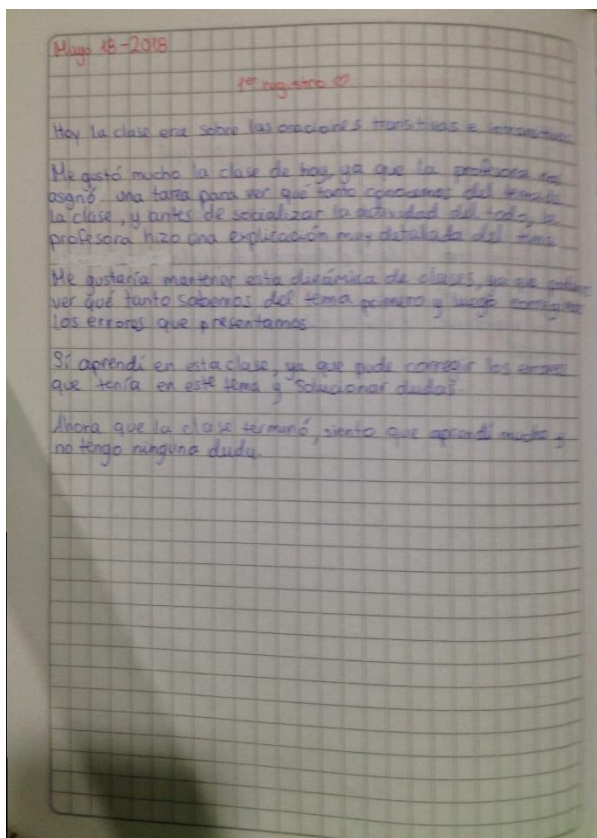 Mayo 18-2018
1er registro ♡
Hoy la clase era sobre las oraciones transitivas e intransitivas
Me gustó mucho la clase de hoy, ya que la profesora nos
asignó una tarea para ver qué tanto conocíamos del tema de
la clase, y antes de socializar la actividad del todo, la
profesora hizo una explicación muy detallada del tema
Me gustaría mantener esta dinámica de clases, ya que
ver qué tanto sabemos del tema primero y luego
los errores que presentamos.
Sí aprendí en esta clase, ya que pude corregir los errores
que tenía en este tema y solucionar dudas.
Ahora que la clase terminó, siento que aprendí mucho y
no tengo ninguna duda.